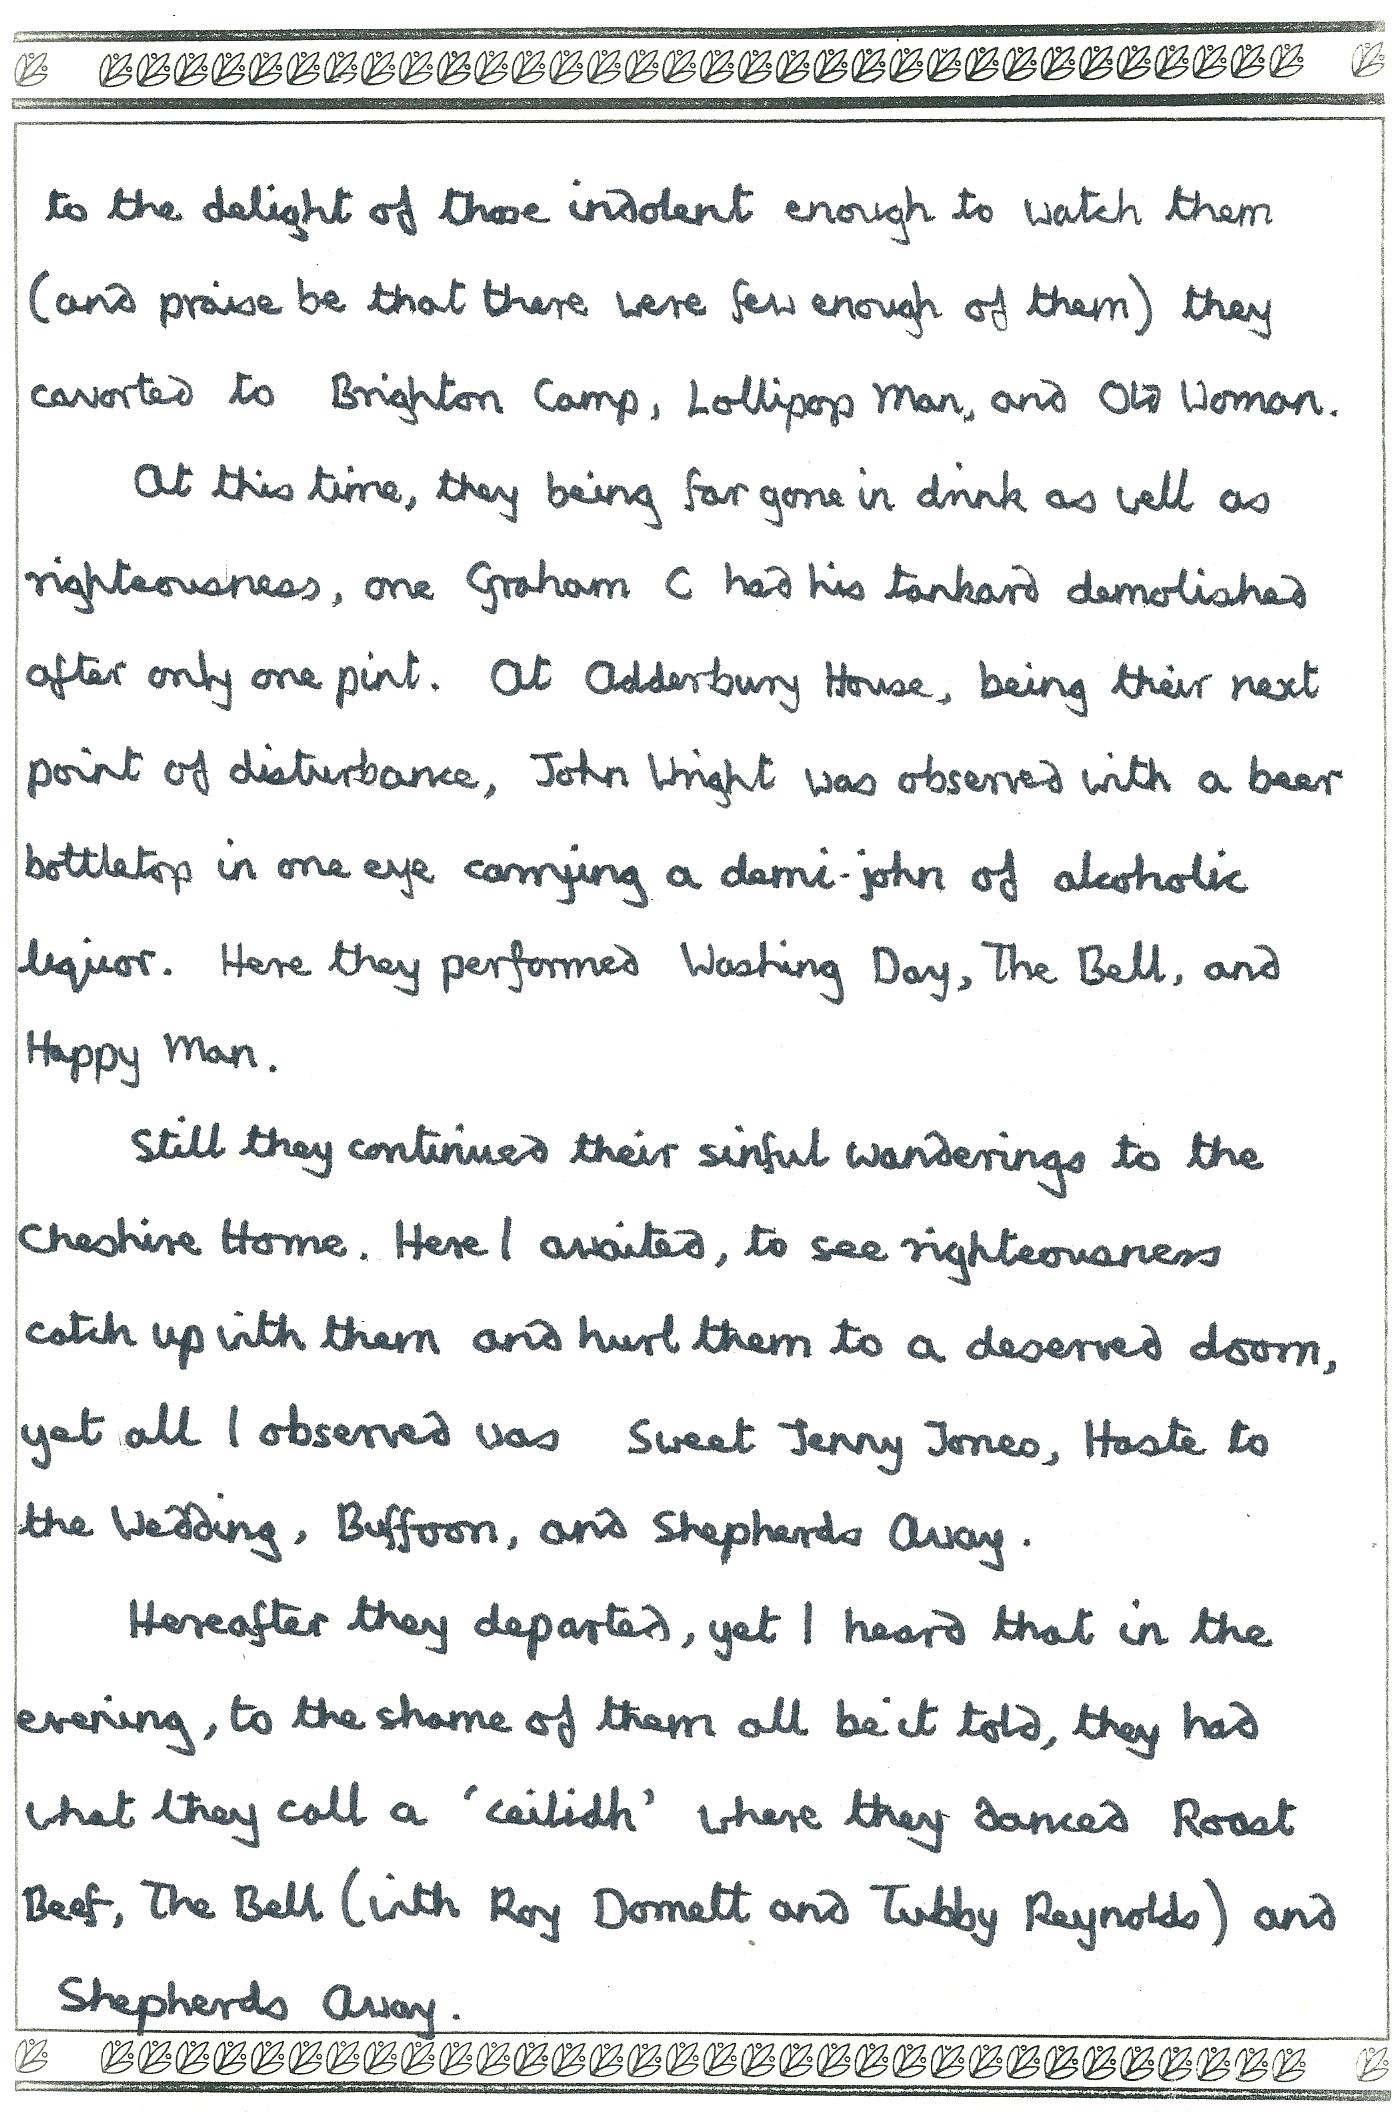 to the delight of those indolent enough to watch them
(and praise be that there were few enough of them) they
cavorted to Brighton Camp, Lollipop Man, and Old Woman.
At this time, they being far gone in drink as well as
righteousness, one Graham C had his tankard demolished
after only one pint. At Adderbury House, being their next
point of disturbance, John Wright was observed with a beer
bottletop in one eye carrying a demi-john of alcoholic
liquor. Here they performed Washing Day, The Bell, and
Happy Man.
Still they continued their sinful wanderings to the
Cheshire Home. Here I awaited, to see righteousness
catch up with them and hurl them to a deserved doom,
yet all I observed was Sweet Jenny Jones, Haste to
the Wedding, Buffoon, and Shepherds Away.
Hereafter they departed, yet I heard that in the
evening, to the shame of them all be it told, they had
what they call a 'ceilidh' where they danced Roast
Beef, The Bell (with Roy Dornett and Tubby Reynolds) and
Shepherds Away.